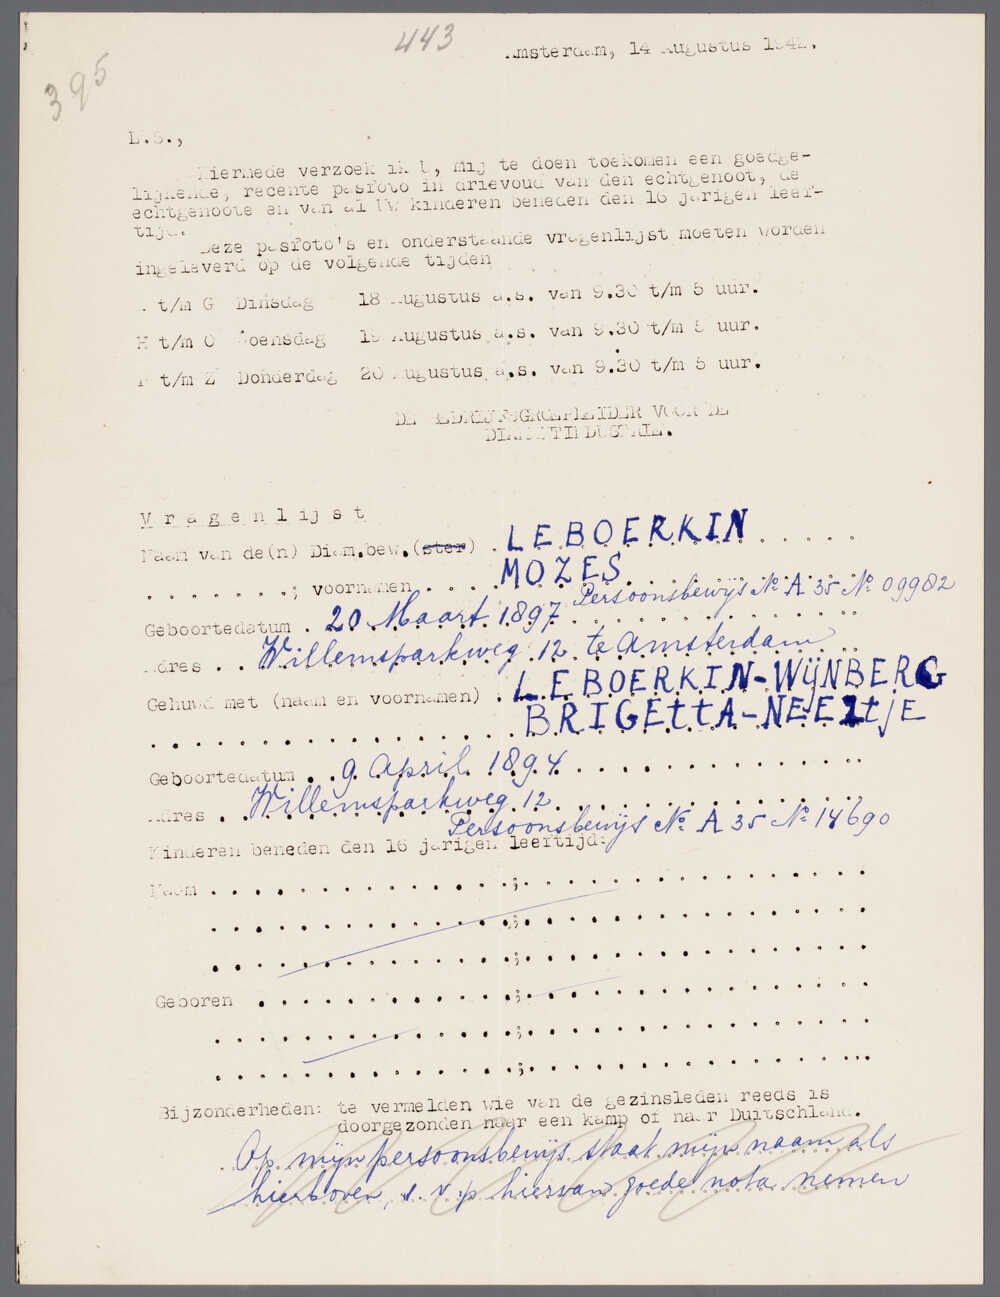 443
395
Amsterdam, 14 Augustus 1942.
L.S.,
Hiermede verzoek ik U, mij te doen toekomen een goedge-
lijkende, recente pasfoto in drievoud van den echtgenoot, de
echtgenoote en van al Uw kinderen beneden den 16 jarigen leef-
tijd.
Deze pasfoto's en onderstaande vragenlijst moeten worden
ingeleverd op de volgende tijden
A t/m G Dinsdag 18 Augustus a.s. van 9.30 t/m 5 uur.
H t/m O Woensdag 19 Augustus a.s. van 9.30 t/m 5 uur.
P t/m Z Donderdag 20 Augustus a.s. van 9.30 t/m 5 uur.
DE BEDRIJFSGROEPLEIDER VOOR DE
DIAMANTINDUSTRIE.
Vragenlijst
Naam van de(n) Diam.bew.(ster) . LEBOERKIN . . . . . .
. . . . . . . .; voornamen . . . . MOZES. . . . . . . . . .
Persoonsbewijs No A 35 No 09982
Geboortedatum . 20 Maart 1897 . . . . . . . . . .
Adres . . Willemsparkweg 12 te Amsterdam
Gehuwd met (naam en voornamen) . LEBOERKIN-WIJNBERG
. . . . . . . . . . . . . . . . . BRIGEttA-NEELtjE
Geboortedatum . . 9 April 1894 . . . . . . . . . . . . . .
Adres . . Willemsparkweg 12 . . . . . . . . . . . . . .
Persoonsbewijs No A 35 No 14690
Kinderen beneden den 16 jarigen leeftijd:
Naam . . . . . . . . . . . . . . . . ; . . . . . . . . . . . . . . . . . .
. . . . . . . . . . . . . . . . ; . . . . . . . . . . . . . . . . . .
. . . . . . . . . . . . . . . . ; . . . . . . . . . . . . . . . . . .
Geboren . . . . . . . . . . . . . ; . . . . . . . . . . . . . . . . . .
. . . . . . . . . . . . . . . . ; . . . . . . . . . . . . . . . . . .
. . . . . . . . . . . . . . . . ; . . . . . . . . . . . . . . . . . .
Bijzonderheden: te vermelden wie van de gezinsleden reeds is
doorgezonden naar een kamp of naar Duitschland.
Op mijn persoonsbewijs staat mijn naam als
hierboven, s.v.p hiervan goede nota nemen